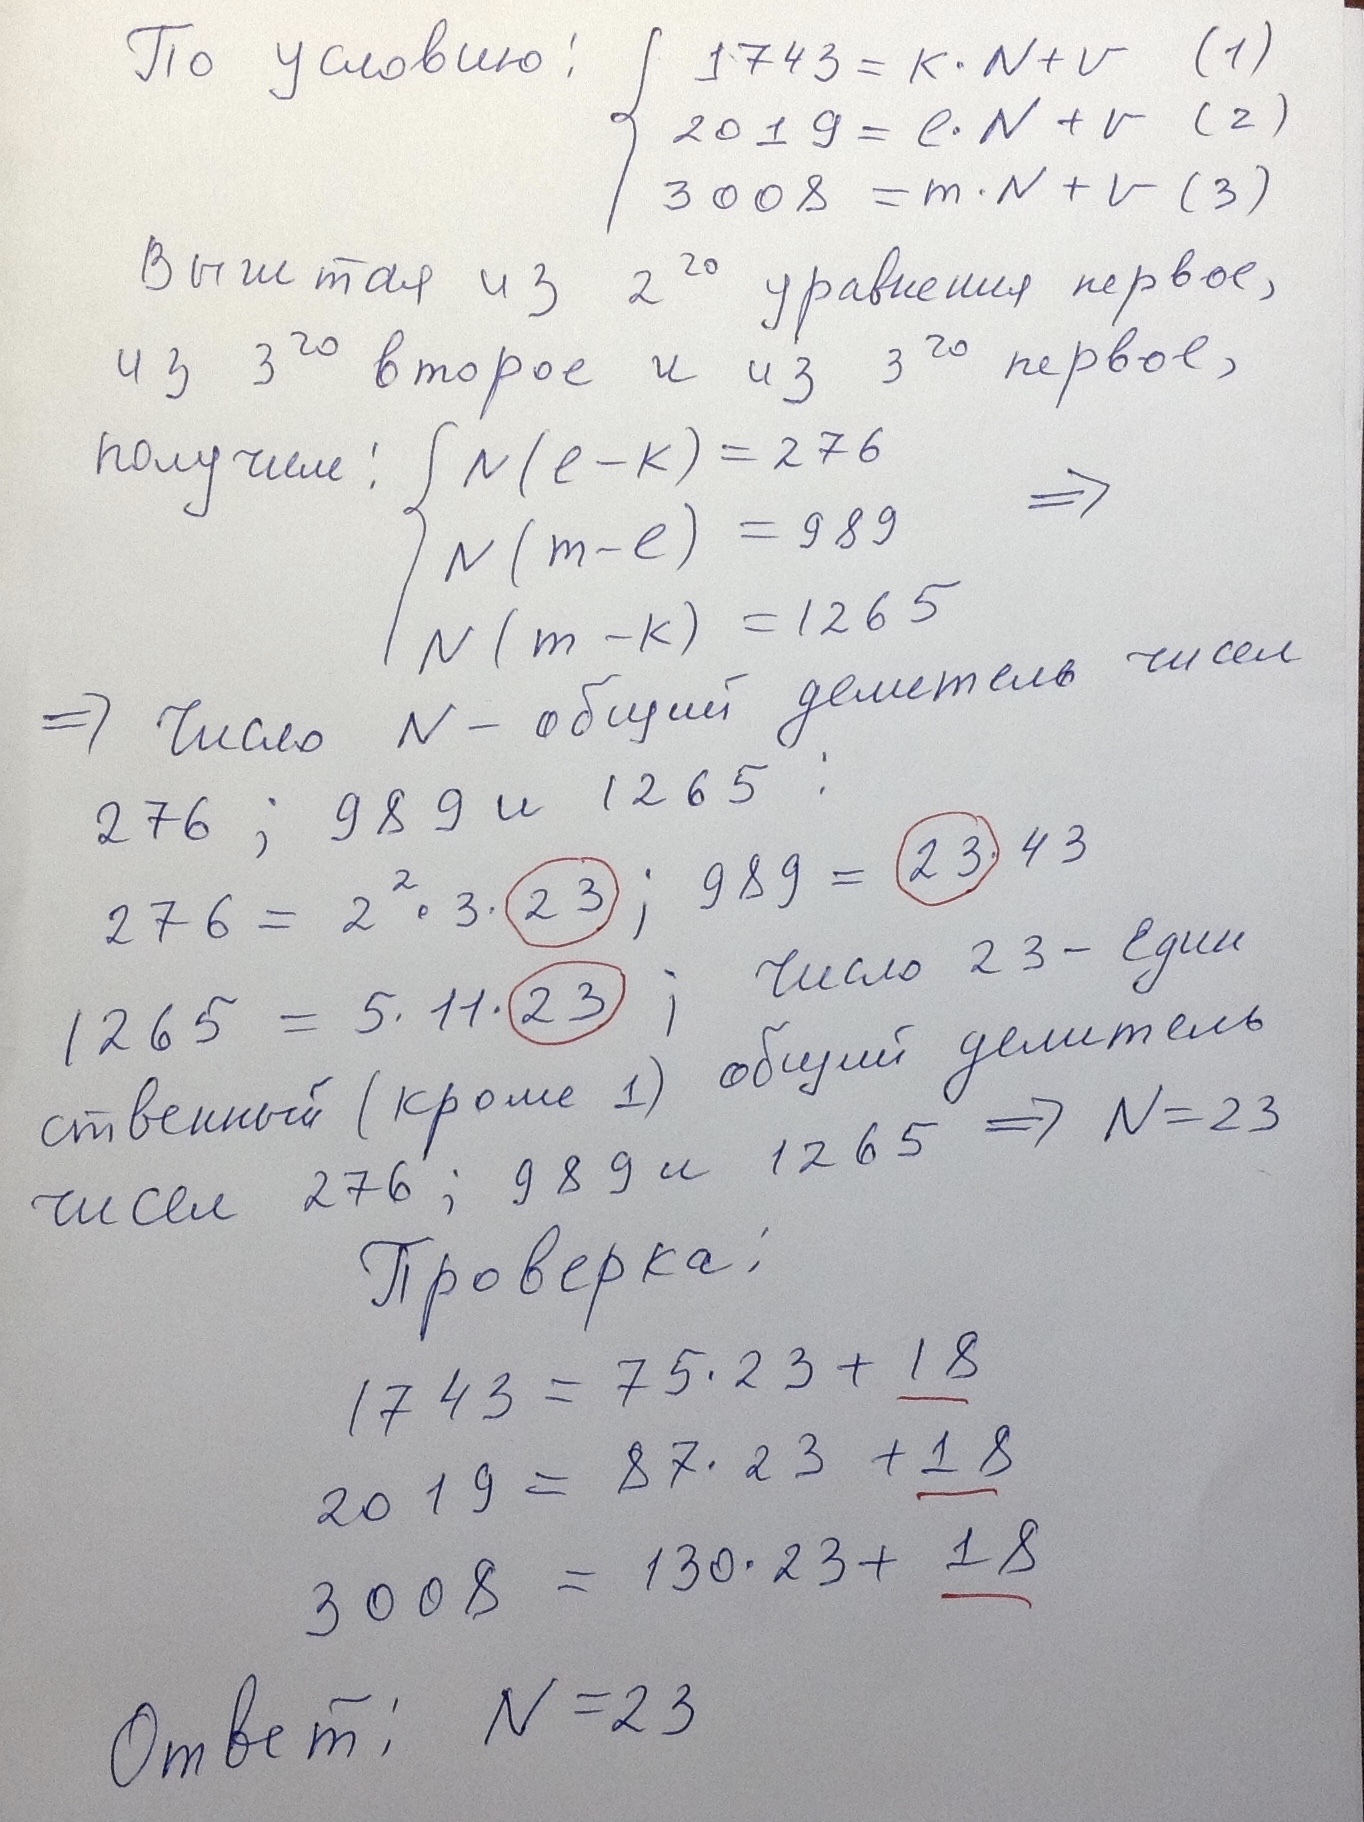 По условию: { 1743 = к·N+v (1)
2019 = l·N+v (2)
3008 = m·N+v (3)
Вычитая из 2го уравнения первое,
из 3го второе и из 3го первое,
получим: { N(l-к) = 276
N(m-l) = 989 =>
N(m-к) = 1265
=> Число N - общий делитель чисел
276; 989 и 1265:
276 = 2²·3·23; 989 = 23·43
1265 = 5·11·23; число 23 - един
ственный (кроме 1) общий делитель
чисел 276; 989 и 1265 => N=23
Проверка:
1743 = 75·23+18
2019 = 87·23+18
3008 = 130·23+18
Ответ: N=23